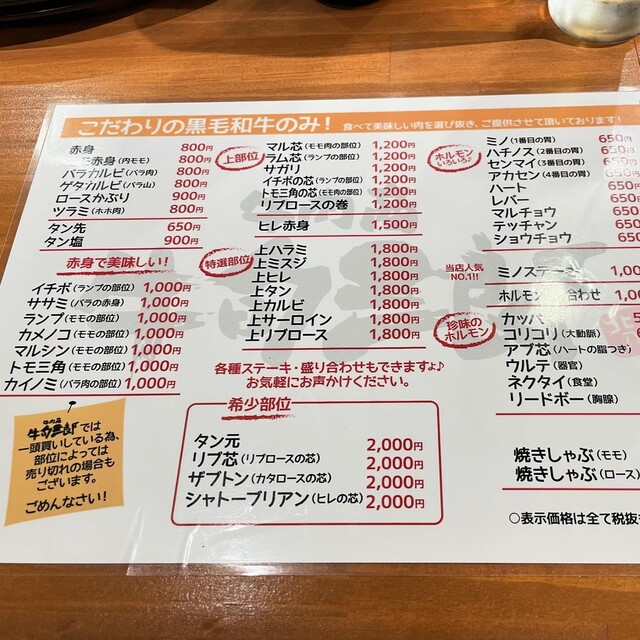 こだわりの黒毛和牛のみ！ 食べて美味しい肉を選び抜き、ご提供させて頂いております！
赤身 800円
赤身(内モモ) 800円
バラカルビ(バラ肉) 800円
ゲタカルビ(バラ山) 800円
ロースかぶり 900円
ツラミ(ホホ肉) 800円
タン先 650円
タン塩 900円
赤身で美味しい！
イチボ(ランプの部位) 1,000円
ササミ(バラの赤身) 1,000円
ランプ(モモの部位) 1,000円
カメノコ(モモの部位) 1,000円
マルシン(モモの部位) 1,000円
トモ三角(モモの部位) 1,000円
カイノミ(バラ肉の部位) 1,000円
牛の蔵
では
一頭買いしている為、
部位によっては
売り切れの場合も
ございます。
ごめんなさい！
上部位
マル芯(モモ肉の部位) 1,200円
ラム芯(ランプの部位) 1,200円
サガリ 1,200円
イチボの芯(ランプの部位) 1,200円
トモ三角の芯(モモ肉の部位) 1,200円
リブロースの巻 1,200円
ヒレ赤身 1,500円
特選部位
上ハラミ 1,800円
上ミスジ 1,800円
上ヒレ 1,800円
上タン 1,800円
上カルビ 1,800円
上サーロイン 1,800円
上リブロース 1,800円
各種ステーキ・盛り合わせもできますよ♪
お気軽にお声かけください。
希少部位
タン元 2,000円
リブ芯(リブロースの芯) 2,000円
ザブトン(カタロースの芯) 2,000円
シャトーブリアン(ヒレの芯) 2,000円
ホルモン
いろいろ♪
ミノ(1番目の胃) 650円
ハチノス(2番目の胃) 650円
センマイ(3番目の胃) 650円
アカセン(4番目の胃) 650円
ハート 650円
レバー 650円
マルチョウ 650円
テッチャン 650円
ショウチョウ 650円
当店人気
NO.1!!
ミノステーキ 1,00
ホルモン 合わせ 1,00
珍味の
ホルモン
カッパ
コリコリ(大動脈)
アブ芯(ハートの脂つき)
ウルテ(器官)
ネクタイ(食堂)
リードボー(胸腺)
焼きしゃぶ(モモ)
焼きしゃぶ(ロース)
○表示価格は全て税抜